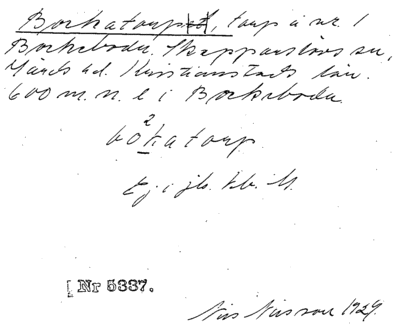 Bockatorpet, torp å nr. 1
Bockeboda, Skepparslövs sn,
Gärds hd. Kristianstads län.
600 m. n. l i Bockeboda.
bo²katorp
Ej i jb. kb. M.
[ Nr 5337.
Nils Nilsson 1924.